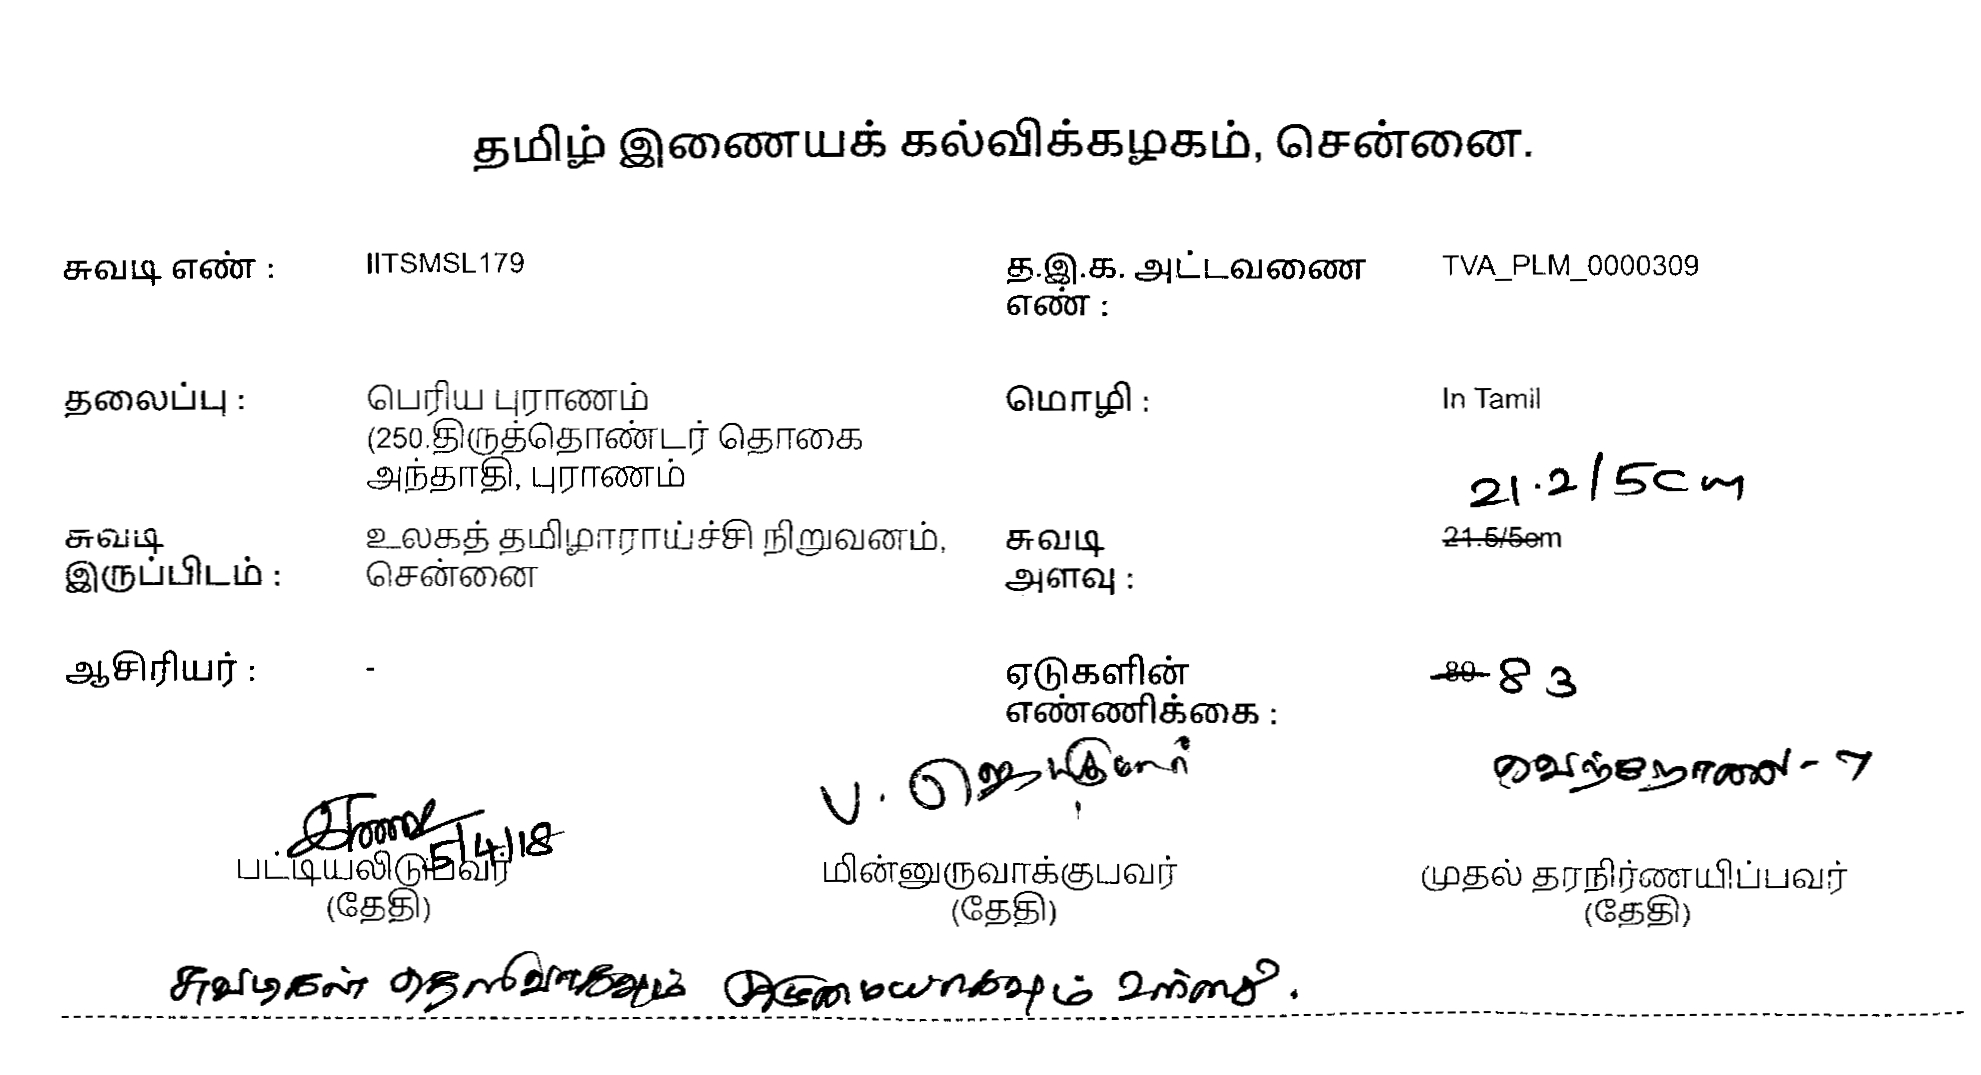 தமிழ் இணையக் கல்விக்கழகம், சென்னை.
சுவடி எண் : IITSMSL179 த.இ.க. அட்டவணை எண் : TVA_PLM_0000309
தலைப்பு : பெரிய புராணம் மொழி : In Tamil
(250.திருத்தொண்டர் தொகை
அந்தாதி, புராணம்
21.2/5cm
சுவடி இருப்பிடம் : உலகத் தமிழாராய்ச்சி நிறுவனம், சென்னை சுவடி அளவு : 21.5/5cm
ஆசிரியர் : - ஏடுகளின் எண்ணிக்கை : 83
5/4/18
பட்டியலிடுபவர் மின்னுருவாக்குபவர் முதல் தரநிர்ணயிப்பவர்
(தேதி) (தேதி) (தேதி)
சுவடிகள் தெளிவாகவும் முழுமையாகவும் உள்ளது.